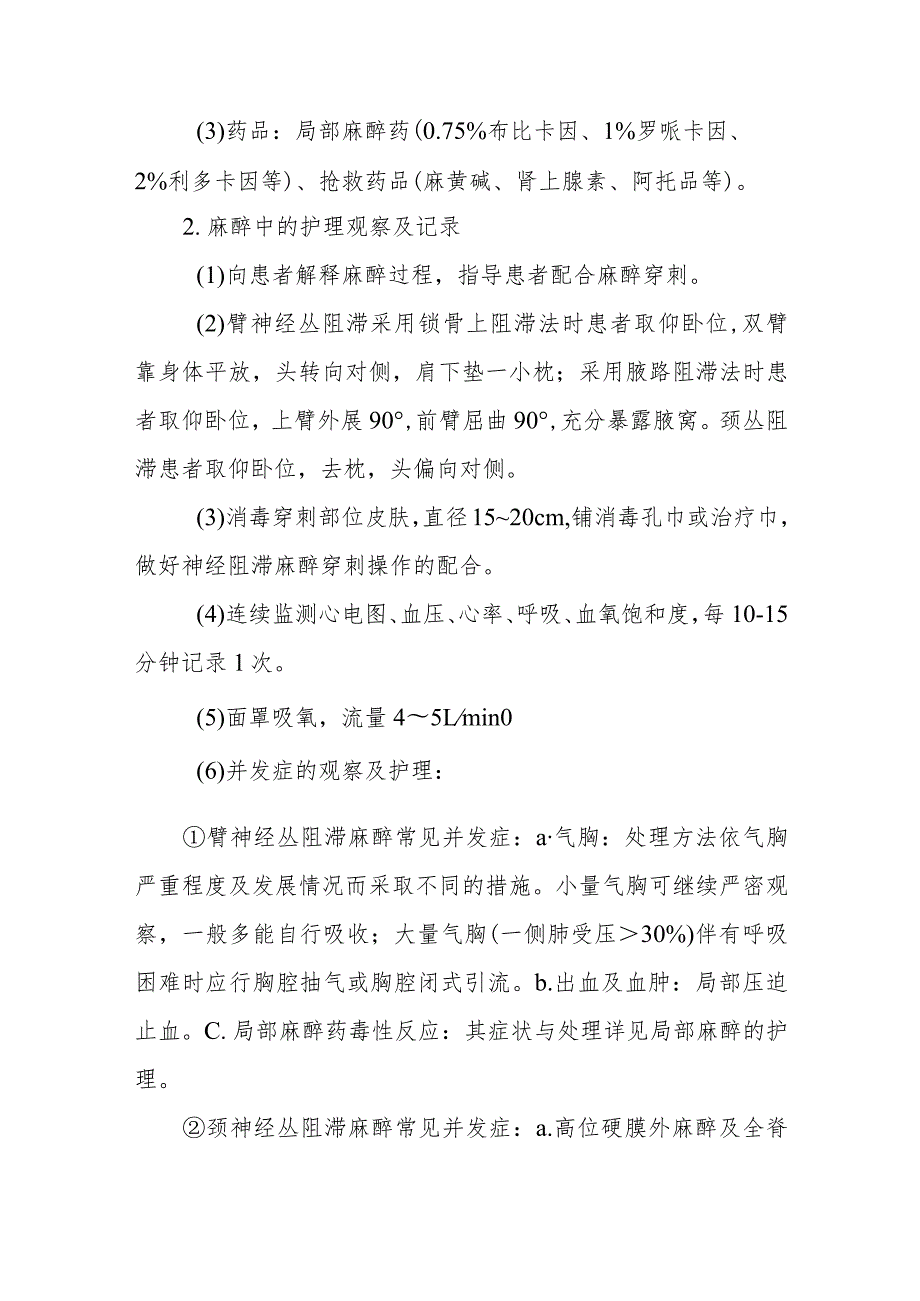 (3)药品：局部麻醉药(0.75%布比卡因、1%罗哌卡因、
2%利多卡因等)、抢救药品(麻黄碱、肾上腺素、阿托品等)。
2. 麻醉中的护理观察及记录
(1)向患者解释麻醉过程，指导患者配合麻醉穿刺。
(2)臂神经丛阻滞采用锁骨上阻滞法时患者取仰卧位,双臂
靠身体平放，头转向对侧，肩下垫一小枕；采用腋路阻滞法时患
者取仰卧位，上臂外展90°,前臂屈曲90°,充分暴露腋窝。颈丛阻
滞患者取仰卧位，去枕，头偏向对侧。
(3)消毒穿刺部位皮肤,直径15~20cm,铺消毒孔巾或治疗巾,
做好神经阻滞麻醉穿刺操作的配合。
(4)连续监测心电图、血压、心率、呼吸、血氧饱和度，每10-15
分钟记录1次。
(5)面罩吸氧，流量4～5L∕min0
(6)并发症的观察及护理：
①臂神经丛阻滞麻醉常见并发症：a·气胸：处理方法依气胸
严重程度及发展情况而采取不同的措施。小量气胸可继续严密观
察，一般多能自行吸收；大量气胸(一侧肺受压＞30%)伴有呼吸
困难时应行胸腔抽气或胸腔闭式引流。b.出血及血肿：局部压迫
止血。C. 局部麻醉药毒性反应：其症状与处理详见局部麻醉的护
理。
②颈神经丛阻滞麻醉常见并发症：a.高位硬膜外麻醉及全脊